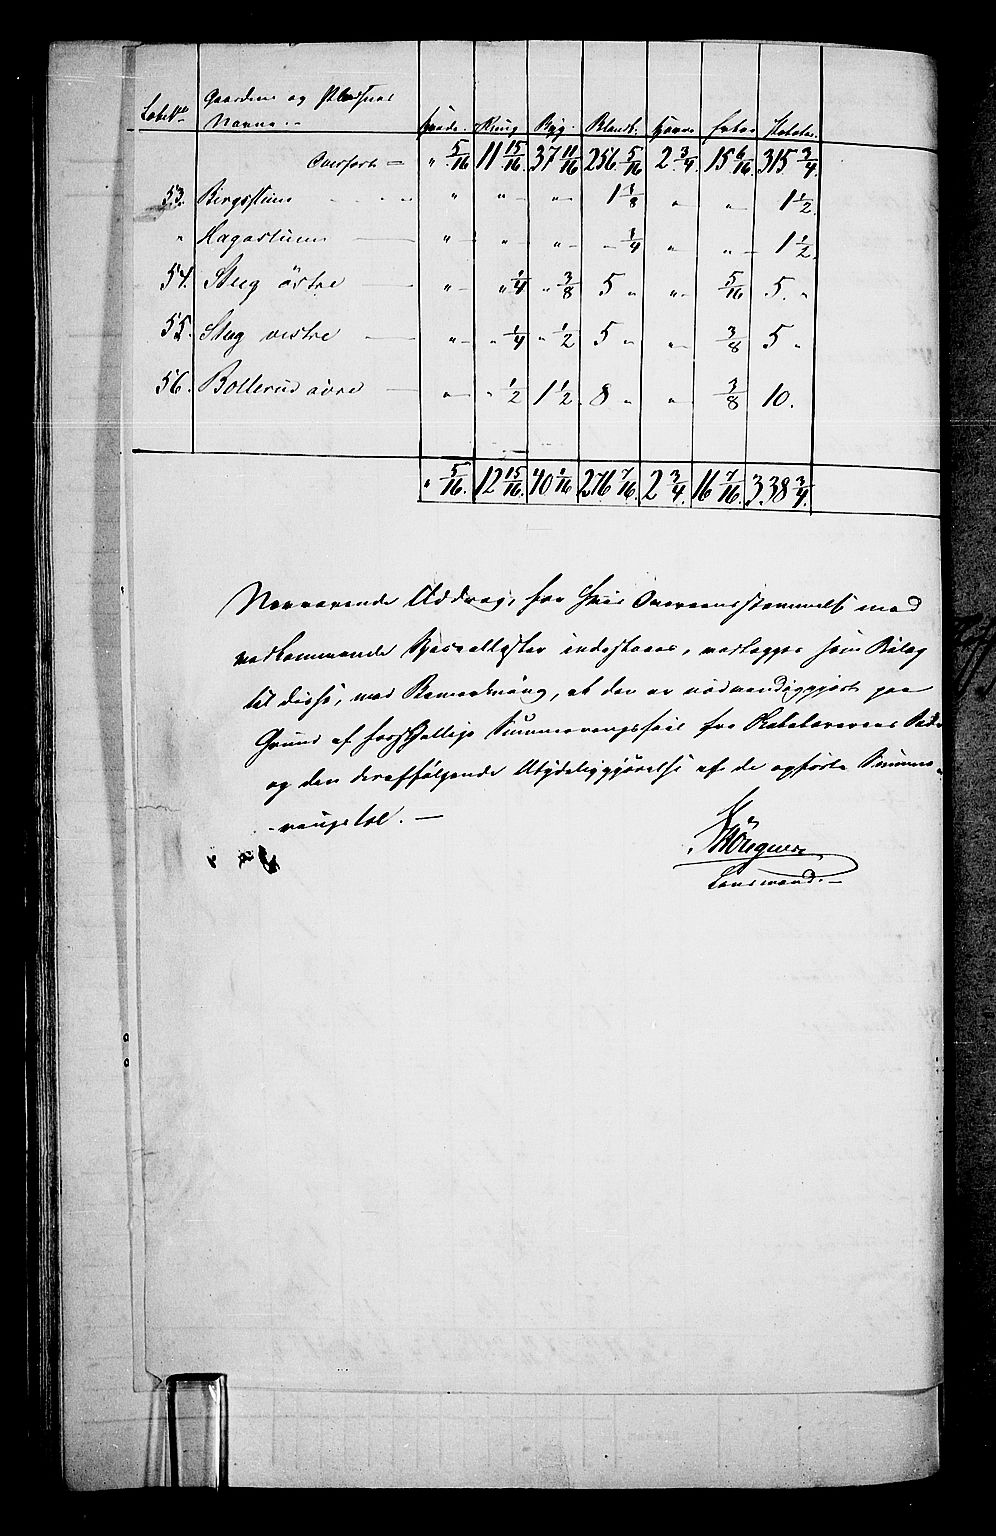 Løbe No Gaardens og Pladsens
Navne.- Hvede. Rug Byg. Blandk. Havre Erter Poteter.
Overført = " 5/16 11 15/16. 37 11/16 256 5/16 2 3/4. 15 6/16 315 3/4.
53. Bergsteen " " " 1 1/8 " " 1 1/2.
" Hagastuen " " " " 1/4 " " 1 1/2.
54. Steg østre " " 1/4 " 3/8 5 " " 5/16 5. "
55. Steg vestre " " 1/4 " 1/2 5 " " 3/8 5 "
56. Bollerud øvre " " 1/2 1 1/2. 8 " " 3/8 10.
" 5/16. 12 15/16. 40 1/16 276 7/16. 2 3/4. 16 7/16. 338 3/4.
Nærværende Uddrag, for hvis Overeensstemmelse med
vedkommende Specallister indestaaes, vedlægges som Bilag
til disse, med Bemærkning, at den er nødvendiggjort paa
Grund af forskjellige Summeringsfeil fra Rodeskriverens Side
og den deraffølgende Utydeliggjørelse af de opførte Summe-
-ringstal. —
Lensmand. —